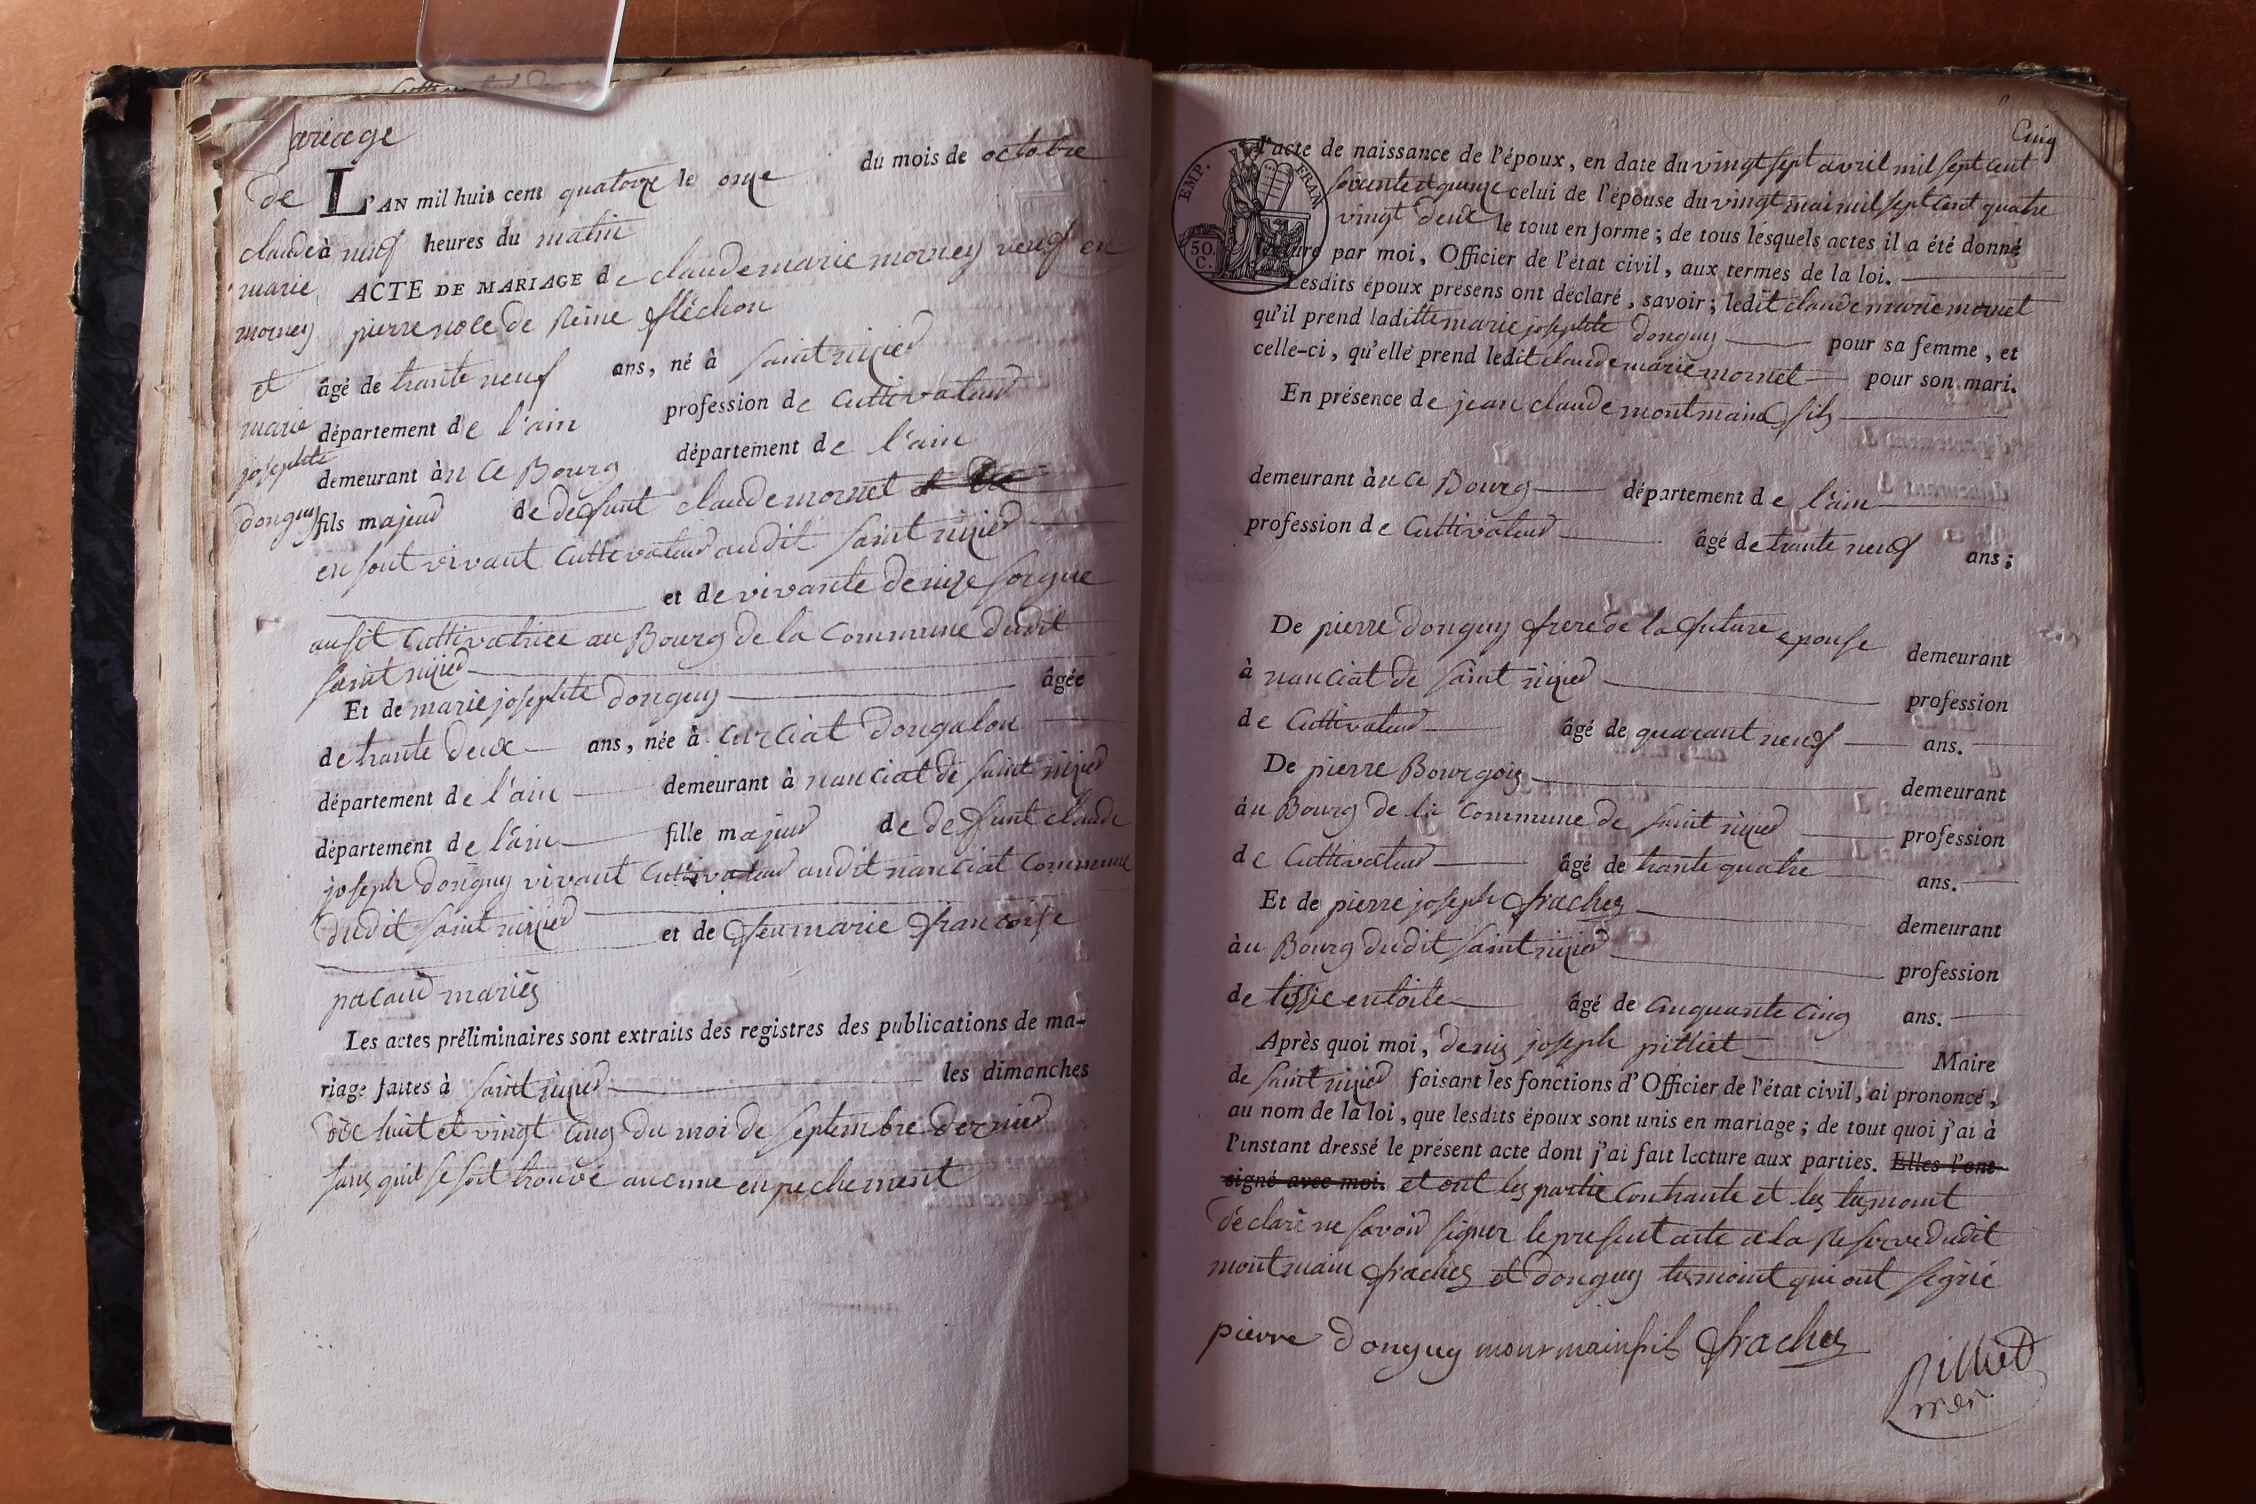 ariage
de
claude
marie
morney
et
marie
josephte
donguy
L'AN mil huit cent quatorze le onze du mois de octobre
à neuf heures du matin
ACTE DE MARIAGE de claude marie morney veuf en
pierre noce de Reine fléchon
âgé de trante neuf ans, né à saint nizier
département de l'ain profession de cultivateur
demeurant àu ce Bourg département de l'ain
fils majeur de defunt claude mornet
en sont vivant cultivateur audit saint nizier
et de vivante denize sorgue
ausit cultivatrice au Bourg de la commune dudit
saint nizier
Et de marie josephte donguy âgée
de trante deux ans, née à curciat dongalon
département de l'ain demeurant à nanciat de saint nizier
département de l'ain fille majeur de deffunt claude
joseph donguy vivant cultivateur audit nanciat commune
dudit saint nizier et de feu marie francoise
pacaud mariés
Les actes préliminaires sont extraits des registres des publications de ma-
riage faites à saint nizier les dimanches
dix huit et vingt cinq du moi de septembre dernier
sans quil se soit trouvé aucune enpechement
Cinq
EMP. FRAN.
50.
C.
l'acte de naissance de l'époux, en date du vingt sept avril mil sept cent
soixante et quinze celui de l'épouse du vingt mai mil sept cent quatre
vingt deux le tout en forme; de tous lesquels actes il a été donné
lecture par moi, Officier de l'état civil, aux termes de la loi.
Lesdits époux présens ont déclaré, savoir; ledit claude marie mornet
qu'il prend laditte marie josephte donguy pour sa femme, et
celle-ci, qu'elle prend ledit claude marie mornet pour son mari.
En présence de jean claude montmain fils
demeurant àu ce Bourg département de l'ain
profession de cultivateur âgé de trante neuf ans;
De pierre donguy frere de la future epouse demeurant
à nanciat de saint nizier profession
de cultivateur âgé de quarant neuf ans.
De pierre Bourgois demeurant
àu Bourg de la commune de saint nizier profession
de cultivateur âgé de trante quatre ans.
Et de pierre joseph frachez demeurant
àu Bourg dudit saint nizier profession
de tissie en toile âgé de cinquante cinq ans.
Après quoi moi, denis joseph pilliet Maire
de saint nizier faisant les fonctions d'Officier de l'état civil, ai prononcé,
au nom de la loi, que lesdits époux sont unis en mariage; de tout quoi j'ai à
l'instant dressé le présent acte dont j'ai fait lecture aux parties. Elles l'ont
signé avec moi. et ont les partie contrante et les temoint
déclaré ne savoir signer le present acte a la Reserve dudit
montmain frachez et donguy temoint qui ont signé
pierre donguy montmain fils frachez
pilliet